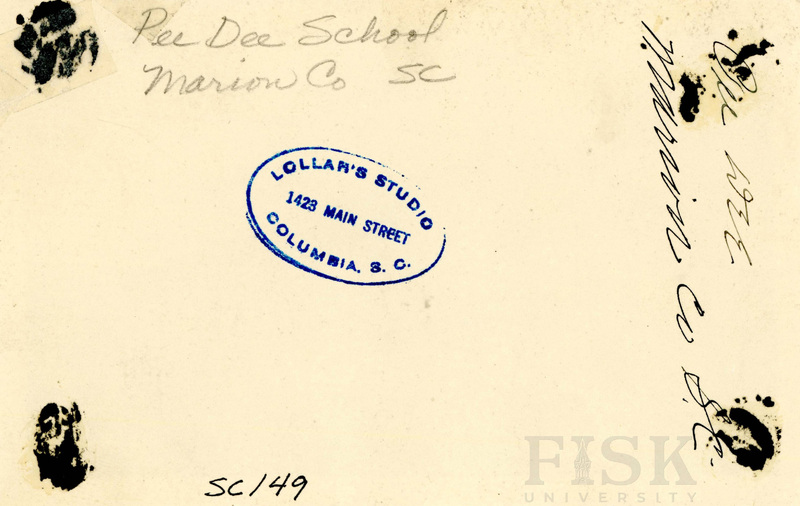 Pee Dee School
Marion Co SC
Pee Dee
Marion Co S.C.
LOLLAR'S STUDIO
1423 MAIN STREET
COLUMBIA, S. C.
SC149
FISK
UNIVERSITY